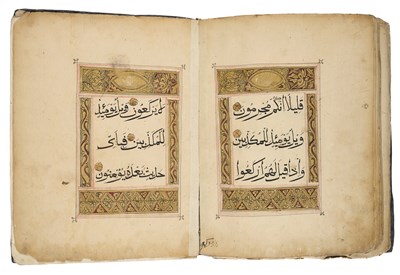 قليلا انكم مجرمون
ويل يومئذ للمكذبين
واذا قيل لهم اركعوا
لا يركعون ويل يومئذ
للمكذبين فباى
حديث بعده يومنون